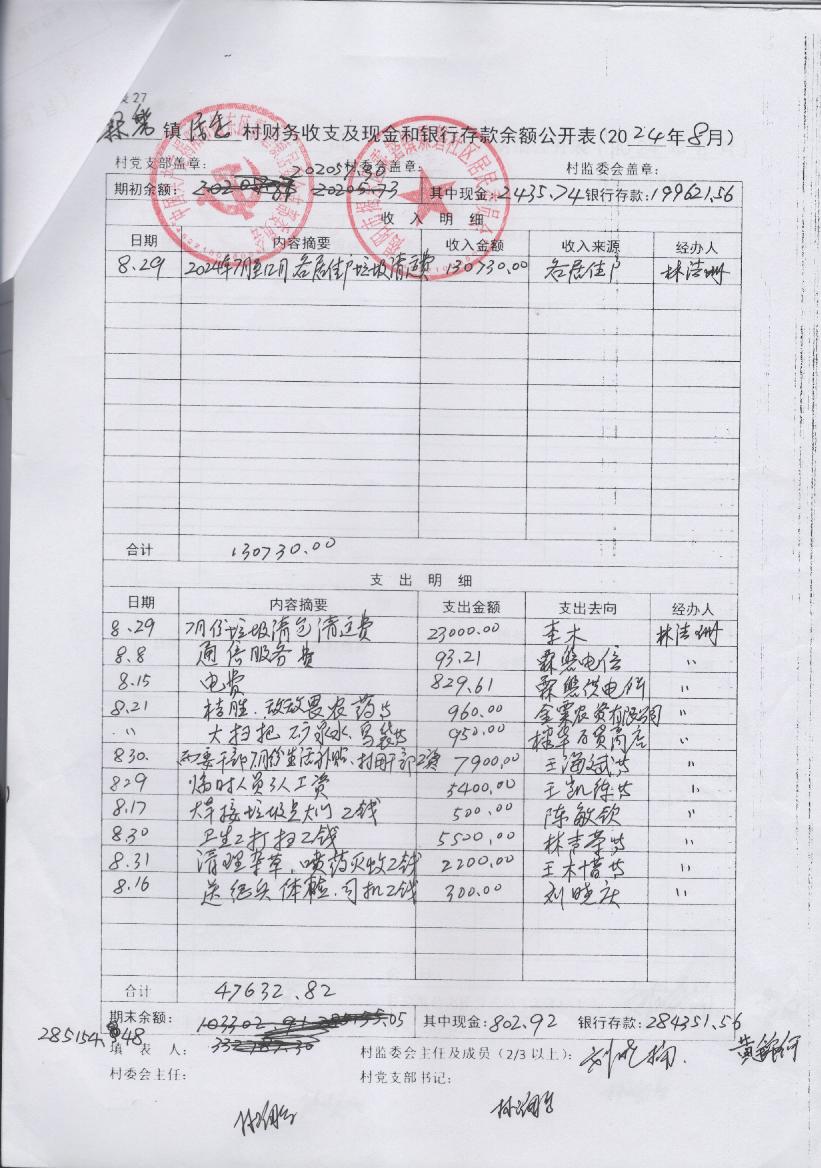 表27
霖磐镇 村财务收支及现金和银行存款余额公开表(2024年8月)
村党支部盖章: 村委会盖章: 村监委会盖章:
202057.30
期初余额: 其中现金:2435.74 银行存款:199621.56
收入明细
日期 内容摘要 收入金额 收入来源 经办人
8.29 2024年7月至12月各居住户垃圾清运费 130730.00 各居住户 林洁珊
合计 130730.00
支出明细
日期 内容摘要 支出金额 支出去向 经办人
8.29 7月份垃圾清包清运费 23000.00 李木 林洁珊
8.8 通信服务费 93.21 霖磐电信 〃
8.15 电费 829.61 霖磐供电所 〃
8.21 桔胜、敌敌畏农药等 960.00 金粟农资有限公司 〃
〃 大扫把、矿泉水、胃袋等 950.00 百货商店 〃
8.30. 两委干部7月份生活补贴、村用干部工资 7900.00 王海斌等 〃
8.29 临时人员3人工资 5400.00 王凯 等 〃
8.17 大车接垃圾点大门工钱 500.00 陈敏钦 〃
8.30 卫生工打扫工钱 5500.00 林吉荣等 〃
8.31 清理杂草、喷药灭蚊工钱 2200.00 王木惜等 〃
8.16 送 体检、司机工钱 300.00 刘晓庆 〃
合计 47632.82
期末余额: 其中现金:802.92 银行存款:284351.56
285154.48
填表人: 村监委会主任及成员(2/3以上):
村委会主任: 村党支部书记: